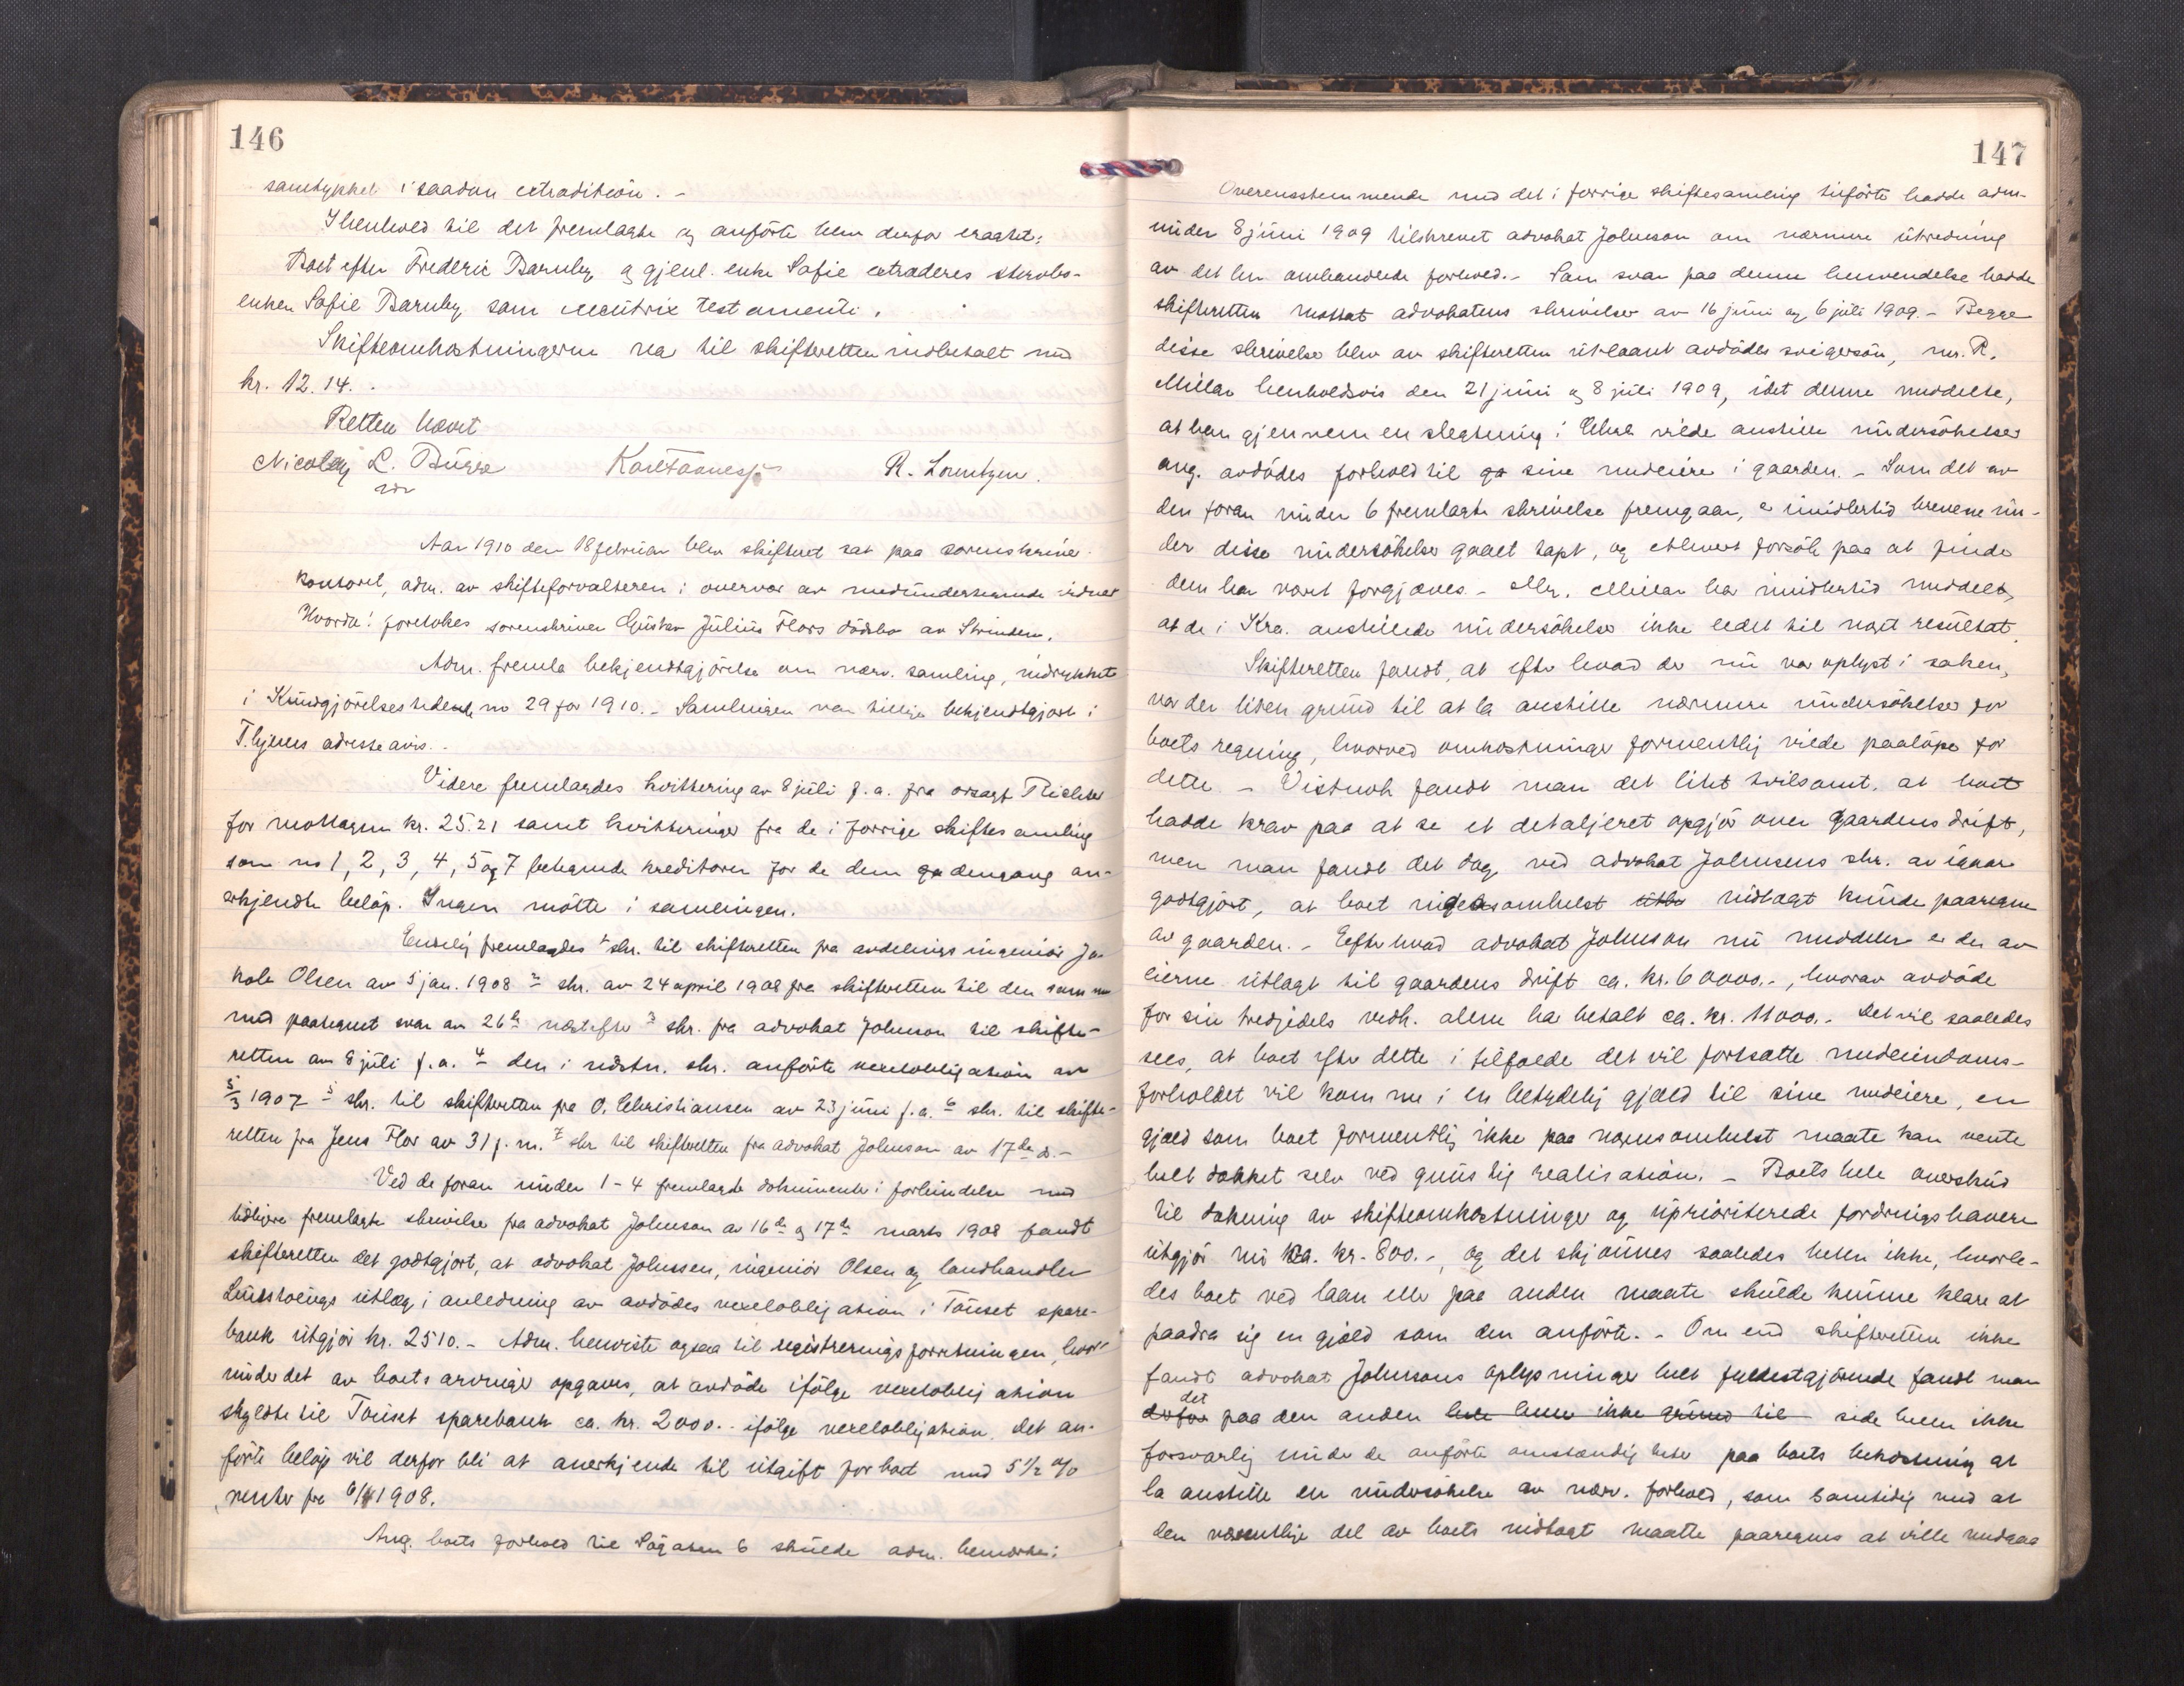 146
samtykket i saadan extradition. -
I henhold til det fremlagte og anførte blev derfor eragtet:
Boet efter Frederic Barnley og gjenl. enke Sofie extraderes sterbo-
enken Sofie Barnley som executrix testamenti.
Skifteomkostningerne var til skifteretten indbetalt med
kr. 12.14.
Retten hævet
Nicolay L. Bugge Karl Fannesjø R. Lorentzen.
Aar 1910 den 18 februar blev skifteret sat paa sorenskriver-
kontoret, adm. av skifteforvalteren i overvær av medundertegnede vidner
Hvorda: foretokes sorenskriver Gustav Julius Flors dødsbo av Strinden.
Adm. fremla bekjendtgjørelse om nærv. samling, indrykket
i Kundgjørelsestidende no 29 for 1910. - Samlingen var tillige bekjendtgjort i
T.hjems adresseavis. -
Videre fremlagdes kvittering av 8 juli f.a. fra orsagf. Richter
for mottagne kr. 25.21 samt kvitteringer fra de i forrige skiftesamling
som no 1, 2, 3, 4, 5 og 7 betegnede kreditorer for de dem dengang an-
erkjendte beløp. Ingen møtte i samlingen.
Endelig fremlagdes 1 skr. til skifteretten fra avdelingsingeniør Ja-
kob Olsen av 5 jan. 1908 2 skr. av 24 april 1908 fra skifteretten til den samme
med paategnet svar av 26de næstefter 3 skr. fra advokat Johnson til skifte-
retten av 8 juli f.a. 4 den i sidstn. skr. anførte vexelobligation av
5/3 1907 5 skr. til skifteretten fra O. Christiansen av 23 juni f.a. 6 skr. til skifte-
retten fra Jens Flor av 31 f.m. 7 skr. til skifteretten fra advokat Johnson av 17de ds. -
Ved de foran under 1-4 fremlagte dokumenter i forbindelse med
tidligere fremlagte skrivelse fra advokat Johnson av 16de og 17de marts 1908 fandt
skifteretten det godtgjort, at advokat Johnssen, ingeniør Olsen og landhandler
utlæg i anledning av avdødes vexelobligation i Tønset spare-
bank utgjør kr. 2510. - Adm. henviste ogsaa til registreringsforretningen, hvor-
under det av boets arvinger opgaves, at avdøde ifølge vexelobligation
skyldte til Tønset sparebank ca. kr. 2000.- ifølge vexelobligation. Det an-
førte beløp vil derfor bli at anerkjende til utgift for boet med 5 1/2 %
renter fra 6/4 1908.
Ang. boets forhold til Søgaten 6 skulde adm. bemerke:
147
Overensstemmende med det i forrige skiftesamling tilførte hadde adm.
under 8 juni 1909 tilskrevet advokat Johnson om nærmere utredning
av det her omhandlede forhold. - Som svar paa denne henvendelse hadde
skifteretten mottat advokatens skrivelser av 16 juni og 6 juli 1909. - Begge
disse skrivelser blev av skifteretten utlaant avdødes svigersøn, mr. R.
Millar henholdsvis den 21 juni og 8 juli 1909, idet denne meddelte,
at han gjennem en slegtning i Chra vilde anstille undersøkelser
ang. avdødes forhold til sine medeiere i gaarden. - Som det av
den foran under 6 fremlagte skrivelse fremgaar, er imidlertid brevene un-
der disse undersøkelser gaaet tapt, og ethvert forsøk paa at finde
dem har været forgjæves. - Mr. Millar har imidlertid meddelt,
at de i Kra. anstillede undersøkelser ikke ledet til noget resultat.
Skifteretten fandt, at efter hvad der nu var oplyst i saken,
var der liten grund til at la anstille nærmere undersøkelser for
boets regning, hvorved omkostninger formentlig vilde paaløpe for
dette. - Vistnok fandt man det litet tvilsomt, at boet
hadde krav paa at se et detaljeret opgjør over gaardens drift,
men man fandt det dog ved advokat Johnsens skr. av igaar
godtgjort, at boet ingensomhelst utbr indtægt kunde paaregne
av gaarden. - Efter hvad advokat Johnson nu meddeler er der av
eierne utlagt til gaardens drift ca. kr. 60000.-, hvorav avdøde
for sin tredjedels vedk. alene har betalt ca. kr. 11000.- Det vil saaledes
sees, at boet efter dette i tilfælde det vil fortsætte medeiendoms-
forholdet vil komme i en betydelig gjæld til sine medeiere, en
gjæld som boet formentlig ikke paa nogensomhelst maate kan vente
helt dækket selv ved gunstig realisation. - Boets hele overskud
til dækning av skifteomkostninger og uprioriterede fordringshavere
utgjør nu ca. kr. 800.-, og det skjønnes saaledes heller ikke, hvorle-
des boet ved laan eller paa anden maate skulde kunne klare at
paadra sig en gjæld som den anførte. - Om end skifteretten ikke
fandt advokat Johnsons oplysninger helt fyldestgjørende fandt man
det
derfor paa den anden hele heller ikke grund til side heller ikke
forsvarlig under de anførte omstændigheter paa boets bekostning at
la anstille en undersøkelse av nærv. forhold, som samtidig med at
den væsentlige del av boets indtægt maatte paaregnes at ville medgaa